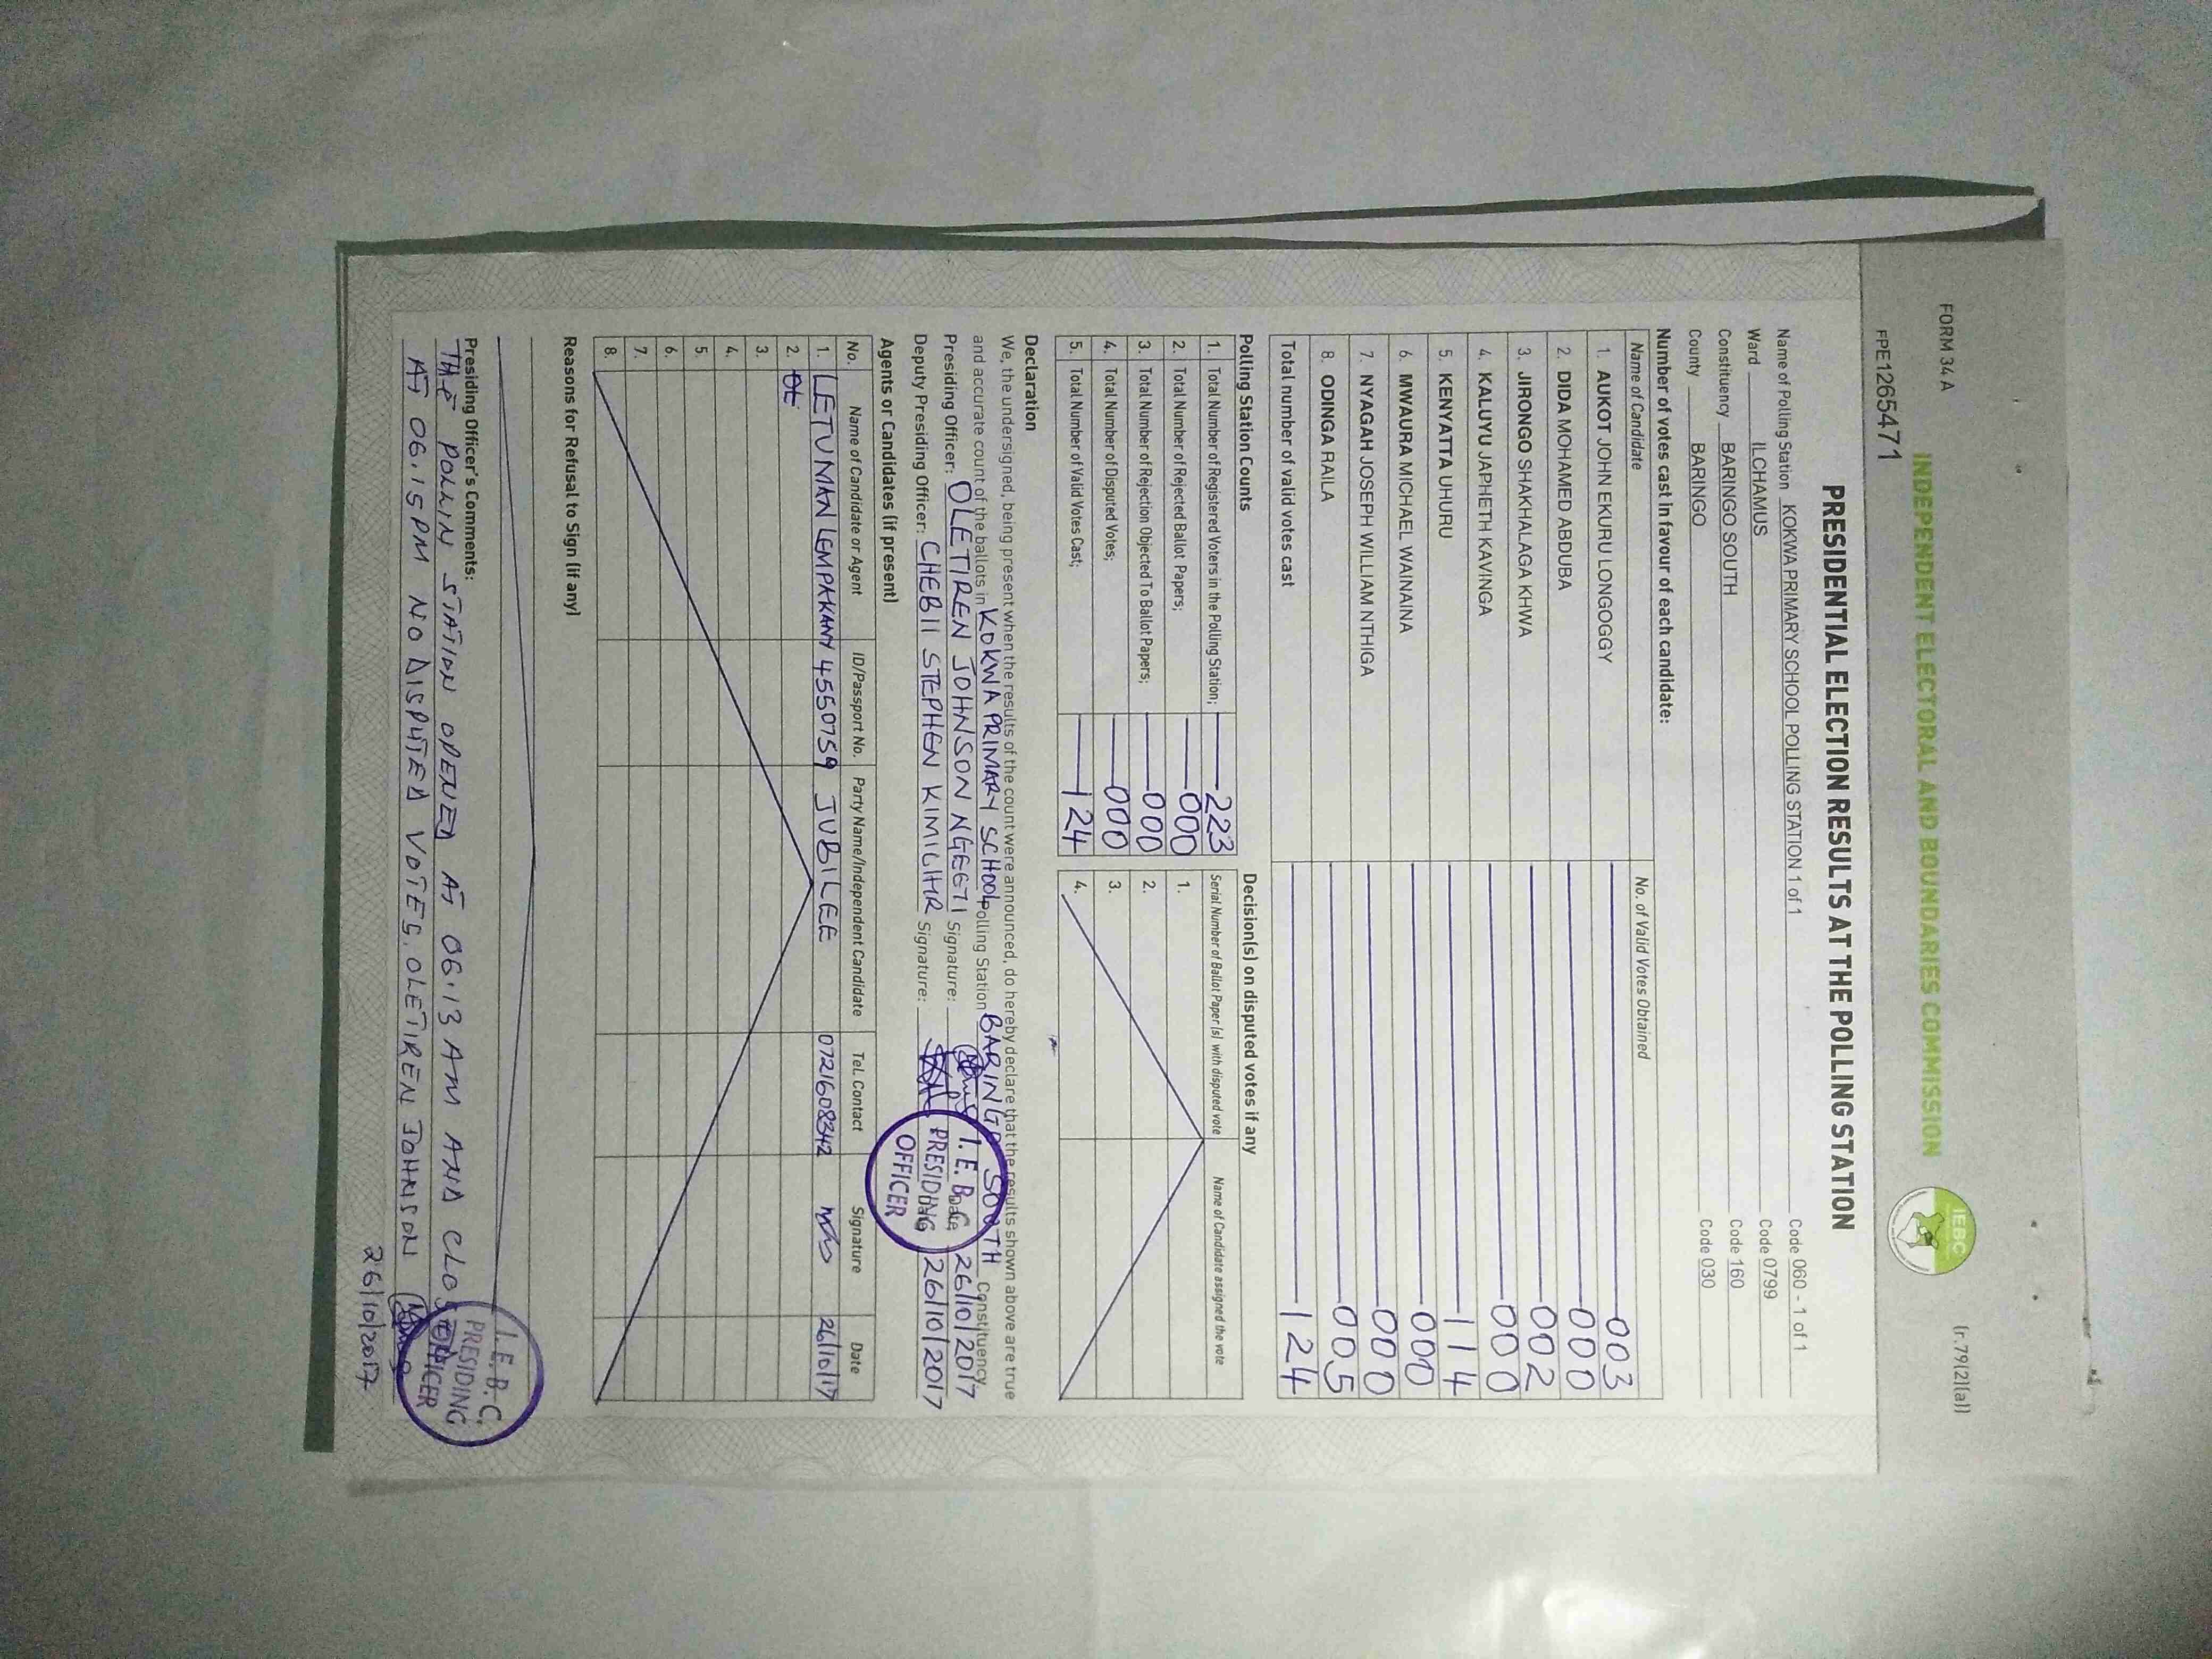 FORM 34 A
(r.79(2)(a))
INDEPENDENT ELECTORAL AND BOUNDARIES COMMISSION
IEBC
FPE126547 1
PRESIDENTIAL ELECTION RESULTS AT THE POLLING STATION
Name of Polling Station KOKWA PRIMARY SCHOOL POLLING STATION 1 of 1 Code 060 - 1 of 1
Ward ILCHAMUS Code 0799
Constituency BARINGO SOUTH Code 160
County BARINGO Code 030
Number of votes cast in favour of each candidate:
Name of Candidate No. of Valid Votes Obtained
1. AUKOT JOHN EKURU LONGOGGY 003
2. DIDA MOHAMED ABDUBA 000
3. JIRONGO SHAKHALAGA KHWA 002
4. KALUYU JAPHETH KAVINGA 000
5. KENYATTA UHURU 114
6. MWAURA MICHAEL WAINAINA 000
7. NYAGAH JOSEPH WILLIAM NTHIGA 000
8. ODINGA RAILA 005
Total number of valid votes cast 124
Polling Station Counts
1. Total Number of Registered Voters in the Polling Station; 223
2. Total Number of Rejected Ballot Papers; 000
3. Total Number of Rejection Objected To Ballot Papers; 000
4. Total Number of Disputed Votes; 000
5. Total Number of Valid Votes Cast; 124
Decision(s) on disputed votes if any
Serial Number of Ballot Paper (s) with disputed vote Name of Candidate assigned the vote
1.
2.
3.
4.
Declaration
We, the undersigned, being present when the results of the count were announced, do hereby declare that the results shown above are true
and accurate count of the ballots in KOKWA PRIMARY SCHOOL Polling Station BARINGO SOUTH Constituency
Presiding Officer: OLETIREN JOHNSON NGEETI Signature: Date 26/10/2017
Deputy Presiding Officer: CHEBII STEPHEN KIMILHR Signature: Date 26/10/2017
I.E.B.C
PRESIDING
OFFICER
Agents or Candidates (if present)
No. Name of Candidate or Agent ID/Passport No. Party Name/Independent Candidate Tel. Contact Signature Date
1. LETUMAN LEMPAKANY 4550759 JUBILEE 0721608342 26/10/17
2.
3.
4.
5.
6.
7.
8.
Reasons for Refusal to Sign (if any)
Presiding Officer's Comments:
THE POLLIN STATION OPENED AT 06.13 AM AND CLOSED
AT 06.15 PM NO DISPUTED VOTES. OLETIREN JOHNSON
26/10/2017
I.E.B.C.
PRESIDING
OFFICER